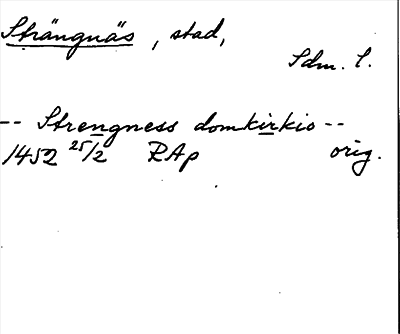 Strängnäs, stad,
Sdm. l.
-- Strengness domkirkio --
1452 25/2 RAp orig.